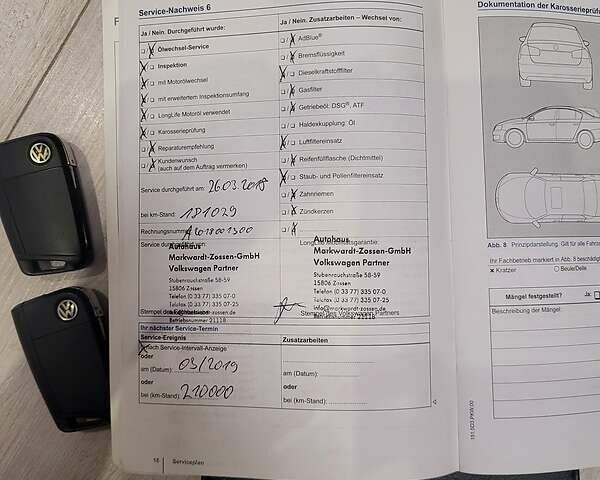 Service-Nachweis 6
Ja / Nein. Durchgeführt wurde:
Ölwechsel-Service
Inspektion
mit Motorölwechsel
mit erweitertem Inspektionsumfang
LongLife Motoröl verwendet
Karosserieprüfung
Reparaturempfehlung
Kundenwunsch
(auch auf dem Auftrag vermerken)
Service durchgeführt am: 26.03.2018
bei km-Stand: 181029
Rechnungsnummer:
Service durchgeführt von:
Autohaus
Markwardt-Zossen-GmbH
Volkswagen Partner
Stubenrauchstraße 58-59
15806 Zossen
Telefon (0 33 77) 335 07-0
Telefax (0 33 77) 335 07-25
Betriebsnummer 21118
Ja / Nein. Zusatzarbeiten – Wechsel von:
AdBlue®
Bremsflüssigkeit
Dieselkraftstofffilter
Gasfilter
Getriebeöl: DSG®, ATF
Haldexkupplung: Öl
Luftfiltereinsatz
Reifenfüllflasche (Dichtmittel)
Staub- und Pollenfiltereinsatz
Zahnriemen
Zündkerzen
LongLife
Autohaus
Markwardt-Zossen-GmbH
Volkswagen Partner
Stubenrauchstraße 58-59
15806 Zossen
Telefon (0 33 77) 335 07-0
Telefax (0 33 77) 335 07-25
info@markwardt-zossen.de
Stempel des Volkswagen Partners
Ihr nächster Service-Termin
Service-Ereignis
nach Service-Intervall-Anzeige
oder
am (Datum): 03/2019
oder
bei (km-Stand): 210000
Zusatzarbeiten
am (Datum):
oder
bei (km-Stand):
16 Serviceplan
Dokumentation der Karosserieprüf
Abb. 8 Prinzipdarstellung. Gilt für alle Fahrz
Ihr Fachbetrieb markiert in Abb. 8 beschädigt
× Kratzer ○ Beule/Delle
Mängel festgestellt? Ja:
Beschreibung der Mängel: